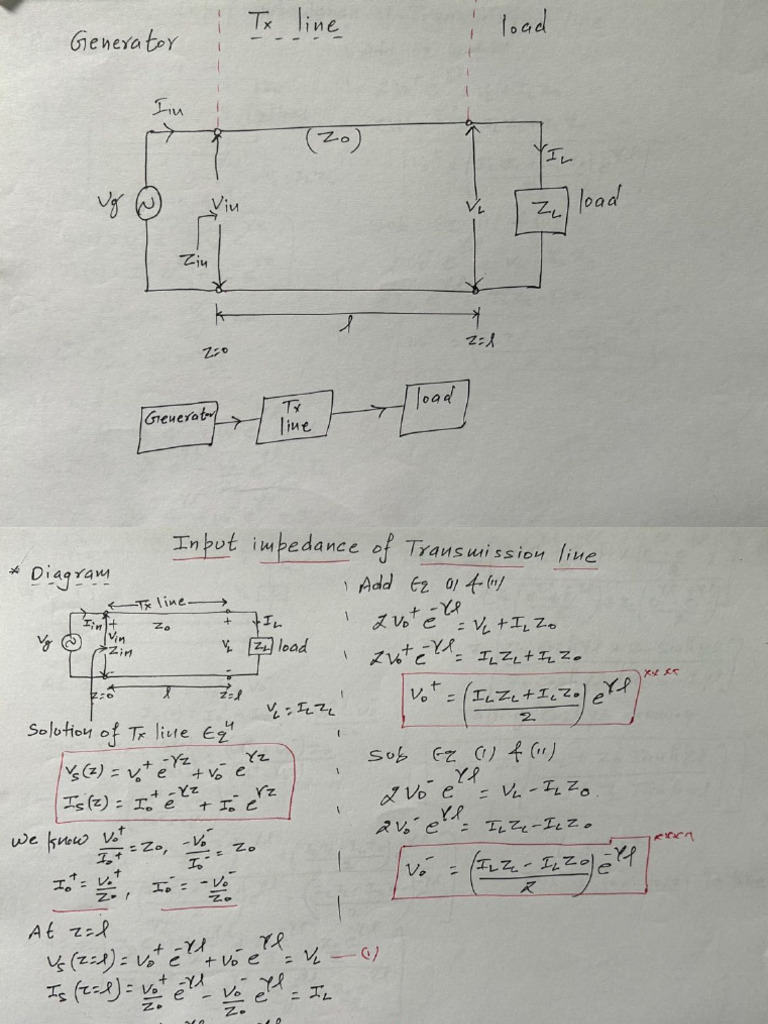 Generator
Tx line
load
Iin
(Z0)
IL
Vg
Vin
VL
ZL
load
Zin
l
z=0
z=l
Generator
Tx line
load
Input impedance of Transmission line
* Diagram
Tx line
Iin
+
Z0
+
IL
Vg
Vin
Zin
VL
ZL
load
-
-
z=0
l
z=l
VL = ILZL
Solution of Tx line Eqⁿ
Vs(z) = V0⁺ e^-γz + V0⁻ e^γz
Is(z) = I0⁺ e^-γz + I0⁻ e^γz
we know V0⁺/I0⁺ = Z0, -V0⁻/I0⁻ = Z0
I0⁺ = V0⁺/Z0, I0⁻ = -V0⁻/Z0
At z=l
Vs(z=l) = V0⁺ e^-γl + V0⁻ e^γl = VL — (1)
Is(z=l) = V0⁺/Z0 e^-γl - V0⁻/Z0 e^γl = IL
Add Eq (1) & (11)
2V0⁺ e^-γl = VL + ILZ0
2V0⁺ e^-γl = ILZL + ILZ0
V0⁺ = ((ILZL + ILZ0)/2) e^γl
xxxx
Sub Eq (1) & (11)
2V0⁻ e^γl = VL - ILZ0.
2V0⁻ e^γl = ILZL - ILZ0
V0⁻ = ((ILZL - ILZ0)/2) e^-γl
xxxx